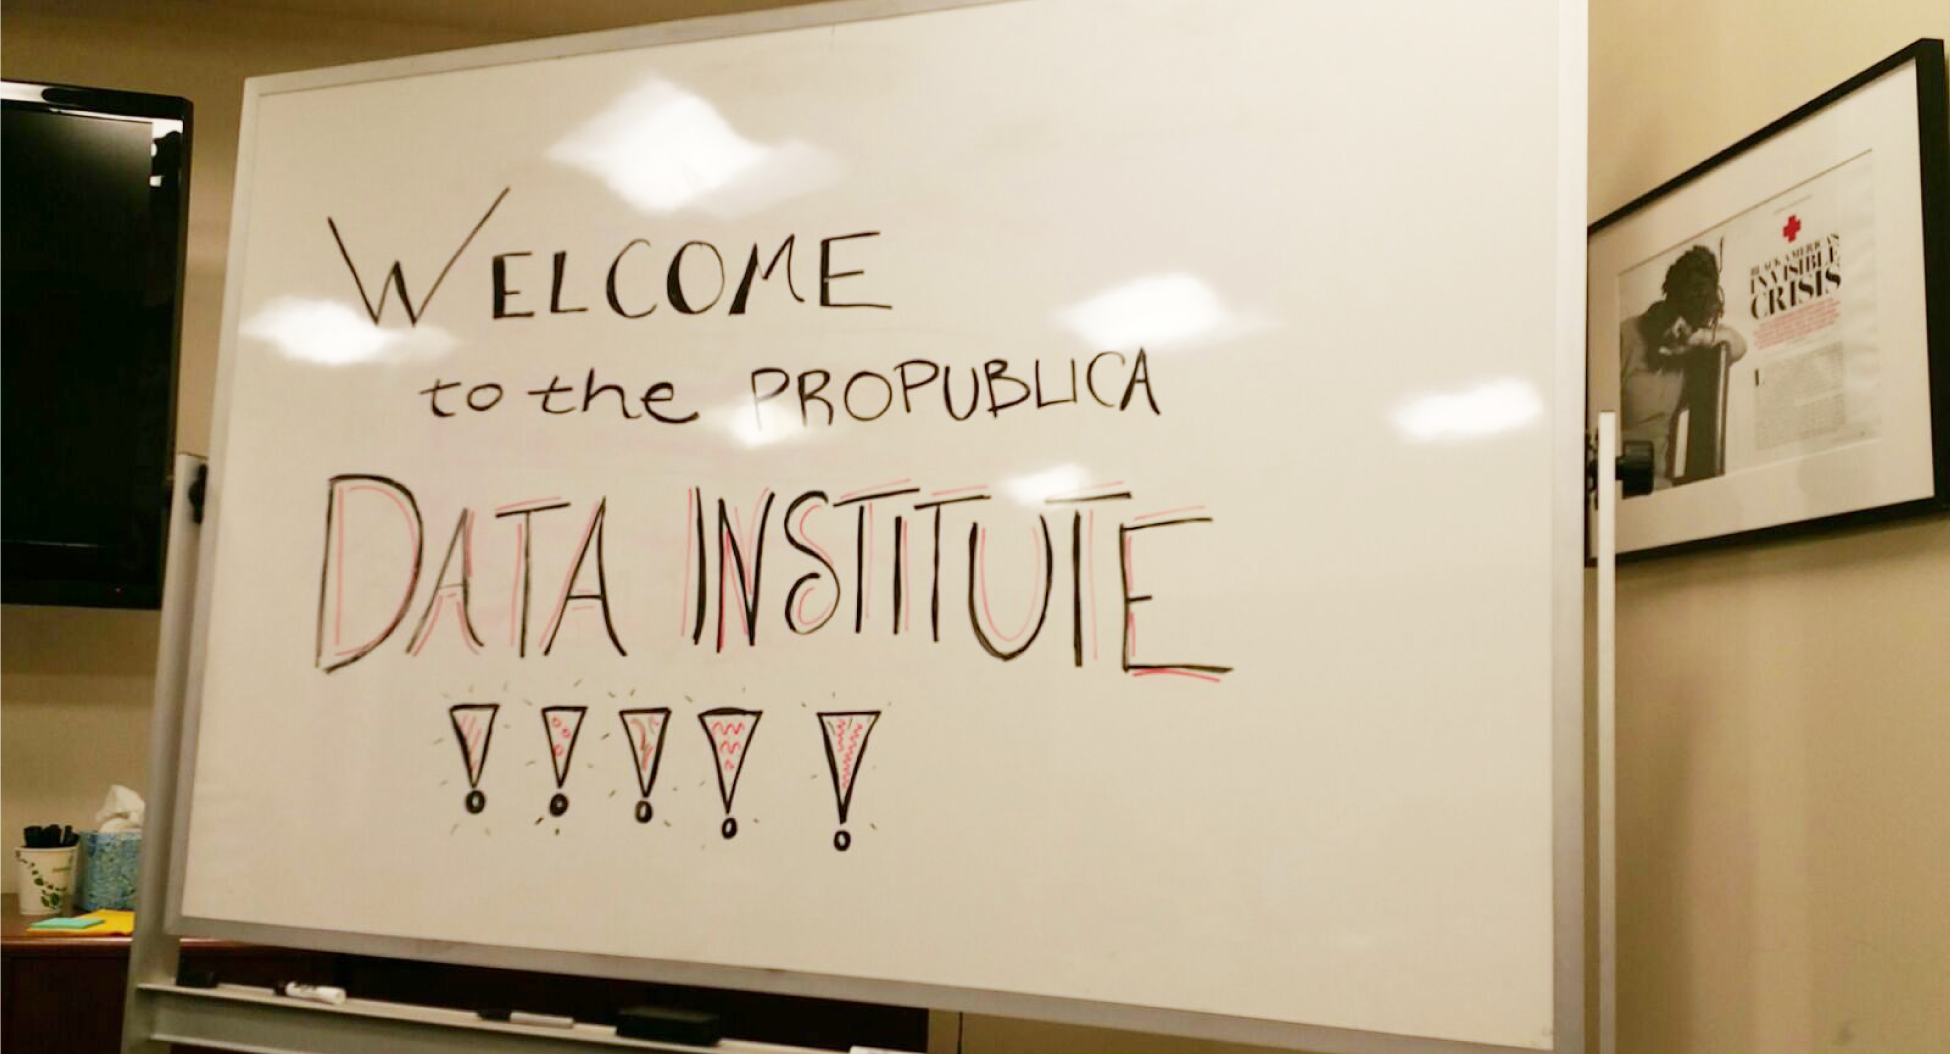 WELCOME
to the PROPUBLICA
DATA INSTITUTE
! ! ! ! !
BLACK AMERICA'S
INVISIBLE
CRISIS